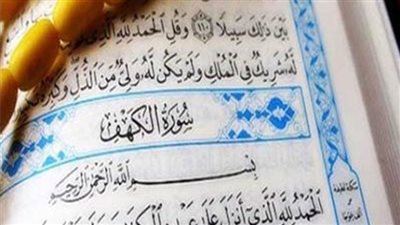 بَيْنَ ذَٰلِكَ سَبِيلًا ١١٠ وَقُلِ الْحَمْدُ لِلَّهِ الَّذِي
لَّهُ شَرِيكٌ فِي الْمُلْكِ وَلَمْ يَكُن لَّهُ وَلِيٌّ مِّنَ الذُّلِّ وَكَبِّرْهُ
سُورَةُ الْكَهْفِ
بِسْمِ اللَّهِ الرَّحْمَٰنِ الرَّحِيمِ
الْحَمْدُ لِلَّهِ الَّذِي أَنزَلَ عَلَىٰ عَبْدِهِ الْكِتَابَ وَلَمْ